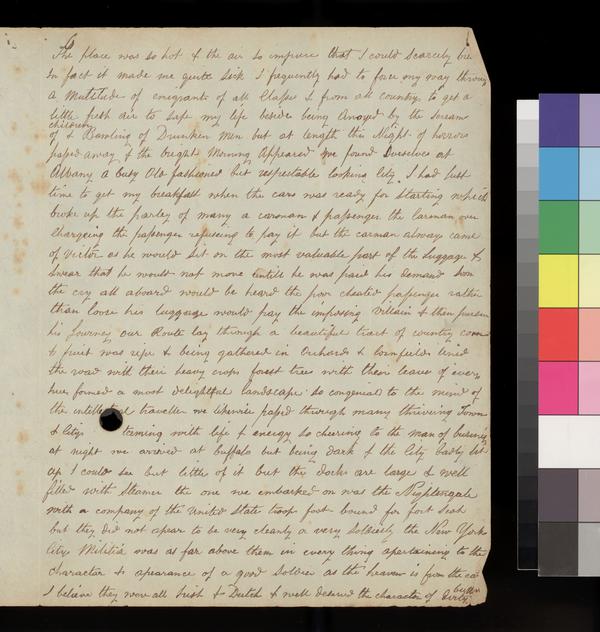 The place was so hot & the air so impure that I could scarcely bre
In fact it made me quite sick I frequently had to force my way throug
a Mutitude of emigrants of all Clases & from all country to get a
little fresh air to save my life beside being Anoyed by the screams
children
of & Bawling of Drunken Men but at length this Night of horrors
passed away & the bright Morning Appeared we found Ourselves at
Albany a busy Old fashioned but respectable looking City I had just
time to get my breakfast when the cars was ready for starting which
broke up the parley of many a carman & passenger the Carman over
Chargeing the passenger refuseing to pay it but the carman always came
of Victor as he would sit on the most valuable part of the Luggage &
swear that he would not move untill he was paid his demand soon
the cry all aboard would be heard the poor cheated passenger rather
than loose his luggage would pay the imposing villain & then pursue
his Journey our Route lay through a beautiful tract of country corn
& fruit was ripe & being gathered in Orchards & cornfields lined
the road with their heavy crops forest trees with their leaves of every
hue formed a most delightful landscape so congenial to the mind of
the intellectual traveller we likewise passed through many thriving Towns
& Citys teeming with life & energy so cheering to the man of business
at night we arrived at buffalo but being dark & the City badly lit
up I could see but little of it but the docks are large & well
filled with Steamers the one we embarked on was the Nightengale
with a company of the United State troop foot bound for fort
but they did not apear to be very cleanly or very soldierly the New York
City Militia was as far above them in every thing apertaining to the
character & apearance of a good Soldier as the heaven is from the ea
I believe they were all Irish & Dutch & well deserved the character of dirty